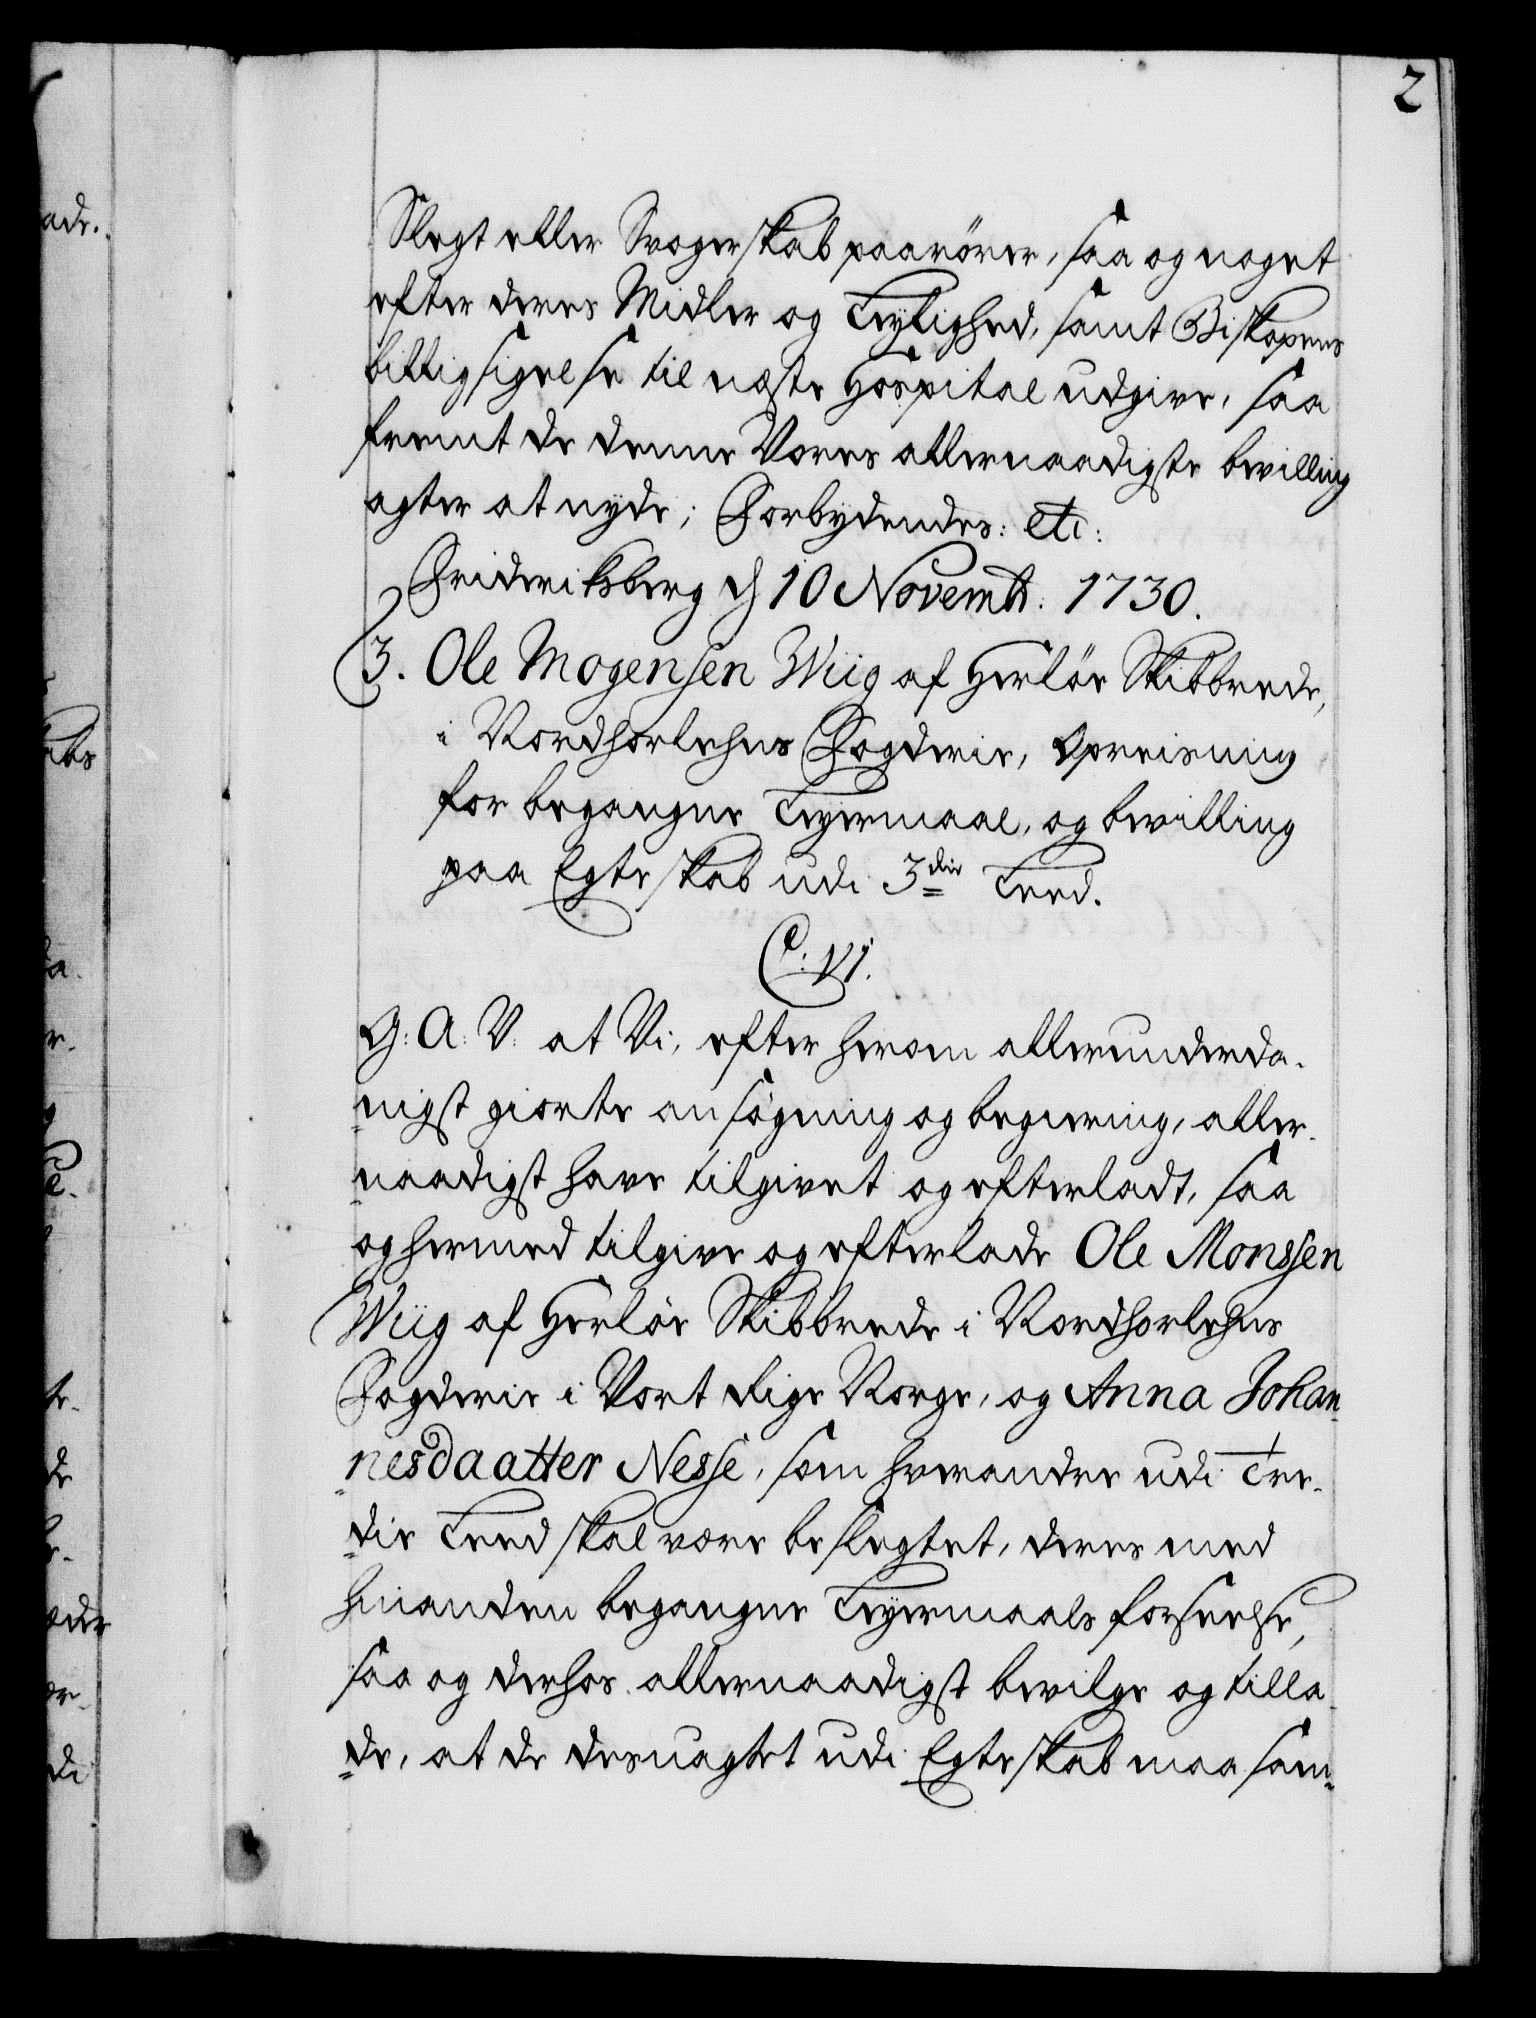 2
Slegt eller Svogerskab paarörer, saa og noget
efter deres Midler og Leylighed, samt Biskopens
billigsigelse til neste Hospital udgive, saa
fremt de denne Vores allernaadigste bevilling
agter at nyde; Forbydendes: etc:
Frideriksberg d 10 Novembr: 1730.
3. Ole Mogensen Wiig af Herlöe Skibbrede,
i Nordhorlehns Fogderie, Opreisning
for begangne Leyermaal, og bevilling
paa Egteskab udi 3die Leed.
C: VI.
G: A: V: at Vi, efter herom allerunderda-
nigst giorte ansögning og begiering, aller-
naadigst have tilgivet og efterladt, saa
og hermed tilgive og efterlade Ole Monssen
Wiig af Herlöe Skibbrede i Nordhorlehns
Fogderie i Vort Rige Norge, og Anna Johan-
nesdaatter Nesse, som hverandre udi Tre-
die Leed skal være beslegtet, deres med
hinanden begangne Leyermaals forseelse,
saa og derhos allernaadigst bevilge og tilla-
de, at de desuagtet udi Egteskab maa sam-